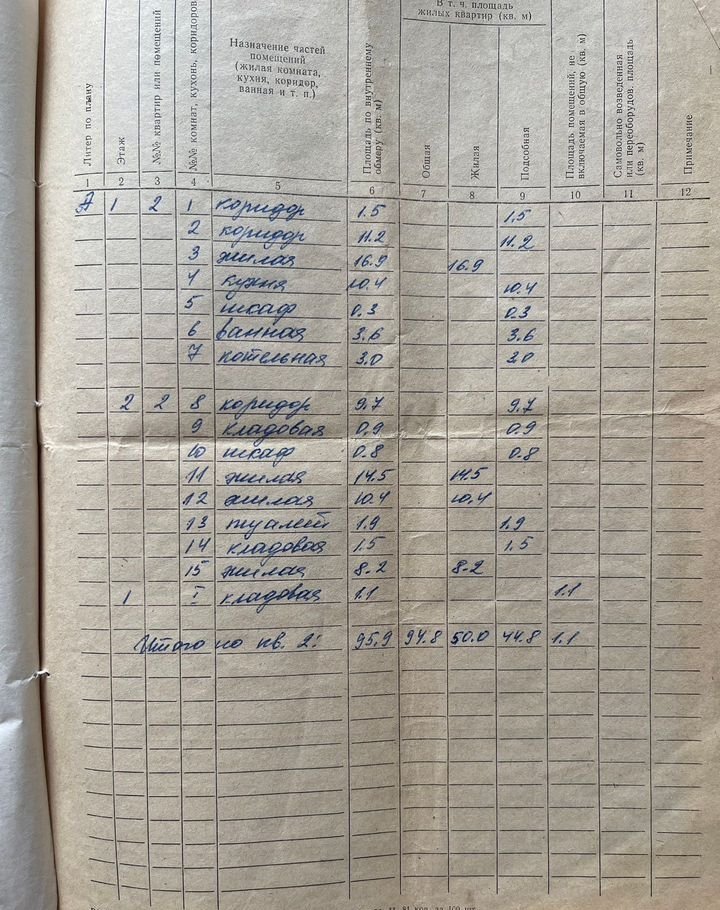 В т. ч. площадь
жилых квартир (кв. м)
Литер по плану
Этаж
№№ квартир или помещений
№№ комнат, кухонь, коридоров
Назначение частей
помещений
(жилая комната,
кухня, коридор,
ванная и т. п.)
Площадь по внутреннему
обмеру (кв. м)
Общая
Жилая
Подсобная
Площадь помещений, не
включаемая в общую (кв. м)
Самовольно возведенная
или переоборудов. площадь
(кв. м)
Примечание
1 2 3 4 5 6 7 8 9 10 11 12
А 1 2 1 коридор 1.5 1.5
2 коридор 11.2 11.2
3 жилая 16.9 16.9
4 кухня 10.4 10.4
5 шкаф 0.3 0.3
6 ванная 3.6 3.6
7 котельная 3.0 3.0
2 2 8 коридор 9.7 9.7
9 кладовая 0.9 0.9
10 шкаф 0.8 0.8
11 жилая 14.5 14.5
12 жилая 10.4 10.4
13 туалет 1.9 1.9
14 кладовая 1.5 1.5
15 жилая 8.2 8.2
1 I кладовая 1.1 1.1
Итого по кв. 2: 95.9 94.8 50.0 44.8 1.1